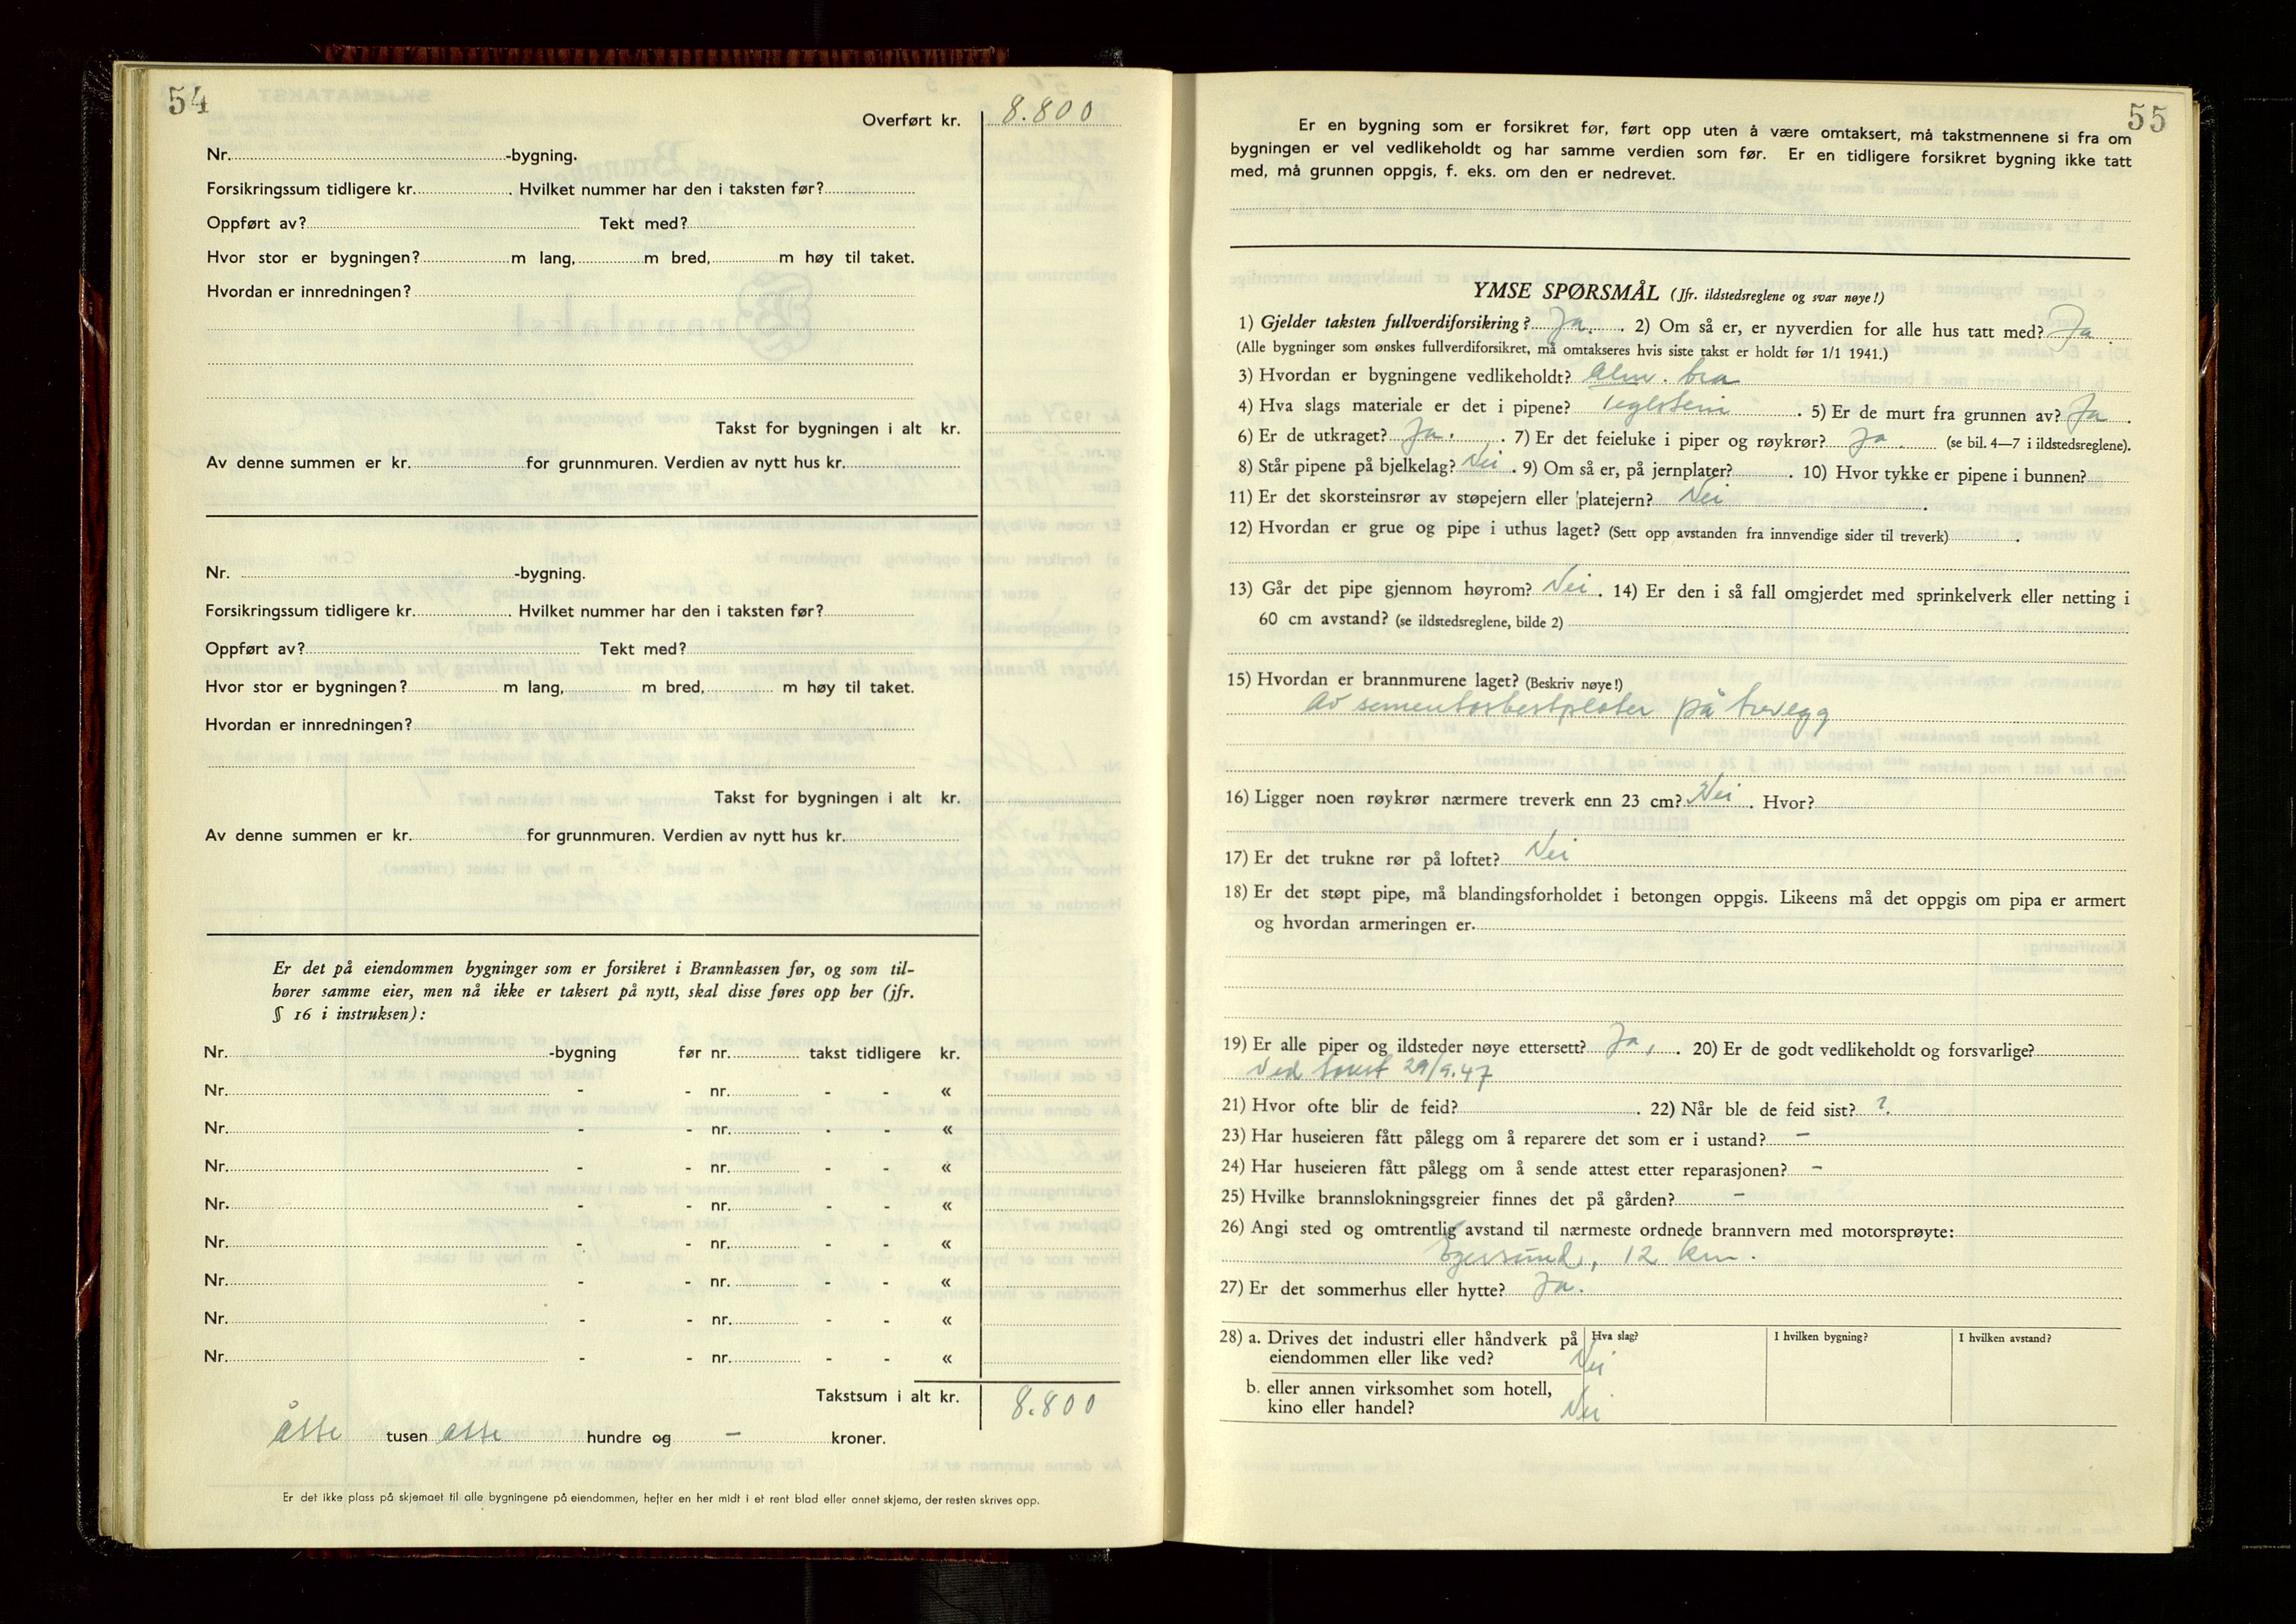 54
Overført kr. 8.800
Nr. -bygning.
Forsikringssum tidligere kr. . Hvilket nummer har den i taksten før?
Oppført av? Tekt med?
Hvor stor er bygningen? m lang, m bred, m høy til taket.
Hvordan er innredningen?
Takst for bygningen i alt kr.
Av denne summen er kr. for grunnmuren. Verdien av nytt hus kr.
Nr. -bygning.
Forsikringssum tidligere kr. . Hvilket nummer har den i taksten før?
Oppført av? Tekt med?
Hvor stor er bygningen? m lang, m bred, m høy til taket.
Hvordan er innredningen?
Takst for bygningen i alt kr.
Av denne summen er kr. for grunnmuren. Verdien av nytt hus kr.
Er det på eiendommen bygninger som er forsikret i Brannkassen før, og som til-
hører samme eier, men nå ikke er taksert på nytt, skal disse føres opp her (jfr.
§ 16 i instruksen):
Nr. -bygning før nr. takst tidligere kr.
Nr. - - nr. - - «
Nr. - - nr. - - «
Nr. - - nr. - - «
Nr. - - nr. - - «
Nr. - - nr. - - «
Nr. - - nr. - - «
Nr. - - nr. - - «
Nr. - - nr. - - «
Takstsum i alt kr. 8.800
åtte tusen åtte hundre og – kroner.
Er det ikke plass på skjemaet til alle bygningene på eiendommen, hefter en her midt i et rent blad eller annet skjema, der resten skrives opp.
55
Er en bygning som er forsikret før, ført opp uten å være omtaksert, må takstmennene si fra om
bygningen er vel vedlikeholdt og har samme verdien som før. Er en tidligere forsikret bygning ikke tatt
med, må grunnen oppgis, f. eks. om den er nedrevet.
YMSE SPØRSMÅL (Jfr. ildstedsreglene og svar nøye!)
1) Gjelder taksten fullverdiforsikring? Ja. . 2) Om så er, er nyverdien for alle hus tatt med? Ja .
(Alle bygninger som ønskes fullverdiforsikret, må omtakseres hvis siste takst er holdt før 1/1 1941.)
3) Hvordan er bygningene vedlikeholdt? Alm. bra
4) Hva slags materiale er det i pipene? Teglstein . 5) Er de murt fra grunnen av? Ja .
6) Er de utkraget? Ja. . 7) Er det feieluke i piper og røykrør? Ja (se bil. 4—7 i ildstedsreglene).
8) Står pipene på bjelkelag? Nei . 9) Om så er, på jernplater? . 10) Hvor tykke er pipene i bunnen?
11) Er det skorsteinsrør av støpejern eller platejern? Nei .
12) Hvordan er grue og pipe i uthus laget? (Sett opp avstanden fra innvendige sider til treverk) .
13) Går det pipe gjennom høyrom? Nei . 14) Er den i så fall omgjerdet med sprinkelverk eller netting i
60 cm avstand? (se ildstedsreglene, bilde 2)
15) Hvordan er brannmurene laget? (Beskriv nøye!)
Av sementasbestplater på trevegg
16) Ligger noen røykrør nærmere treverk enn 23 cm? Nei . Hvor?
17) Er det trukne rør på loftet? Nei
18) Er det støpt pipe, må blandingsforholdet i betongen oppgis. Likeens må det oppgis om pipa er armert
og hvordan armeringen er.
19) Er alle piper og ildsteder nøye ettersett? Ja, . 20) Er de godt vedlikeholdt og forsvarlige?
Ved takst 29/9.47
21) Hvor ofte blir de feid? . 22) Når ble de feid sist? ?.
23) Har huseieren fått pålegg om å reparere det som er i ustand? –
24) Har huseieren fått pålegg om å sende attest etter reparasjonen? –
25) Hvilke brannslokningsgreier finnes det på gården? –
26) Angi sted og omtrentlig avstand til nærmeste ordnede brannvern med motorsprøyte:
Egersund, 12 km.
27) Er det sommerhus eller hytte? Ja.
28) a. Drives det industri eller håndverk på Hva slag? I hvilken bygning? I hvilken avstand?
eiendommen eller like ved? Nei
b. eller annen virksomhet som hotell,
kino eller handel? Nei